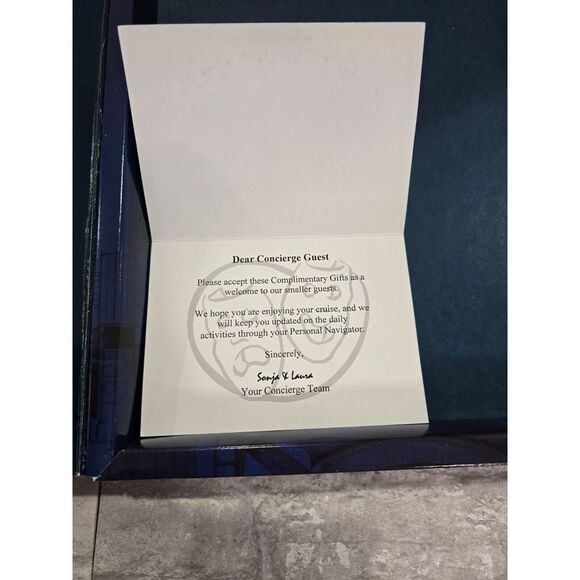 Dear Concierge Guest
Please accept these Complimentary Gifts as a
welcome to our smaller guests.
We hope you are enjoying your cruise, and we
will keep you updated on the daily
activities through your Personal Navigator.
Sincerely,
Sonja & Laura
Your Concierge Team